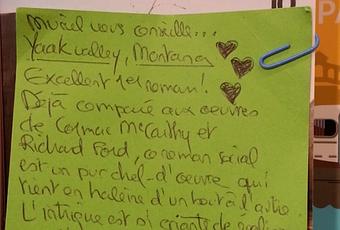 Muriel vous conseille...
Yaak valley, Montana
Excellent 1er roman!
Déjà comparé aux oeuvres
de Cormac McCarthy et
Richard Ford, ce roman social
est un pur chef-d'œuvre qui
tient en haleine d'un bout à l'autre.
L'intrigue est si criante de
PA